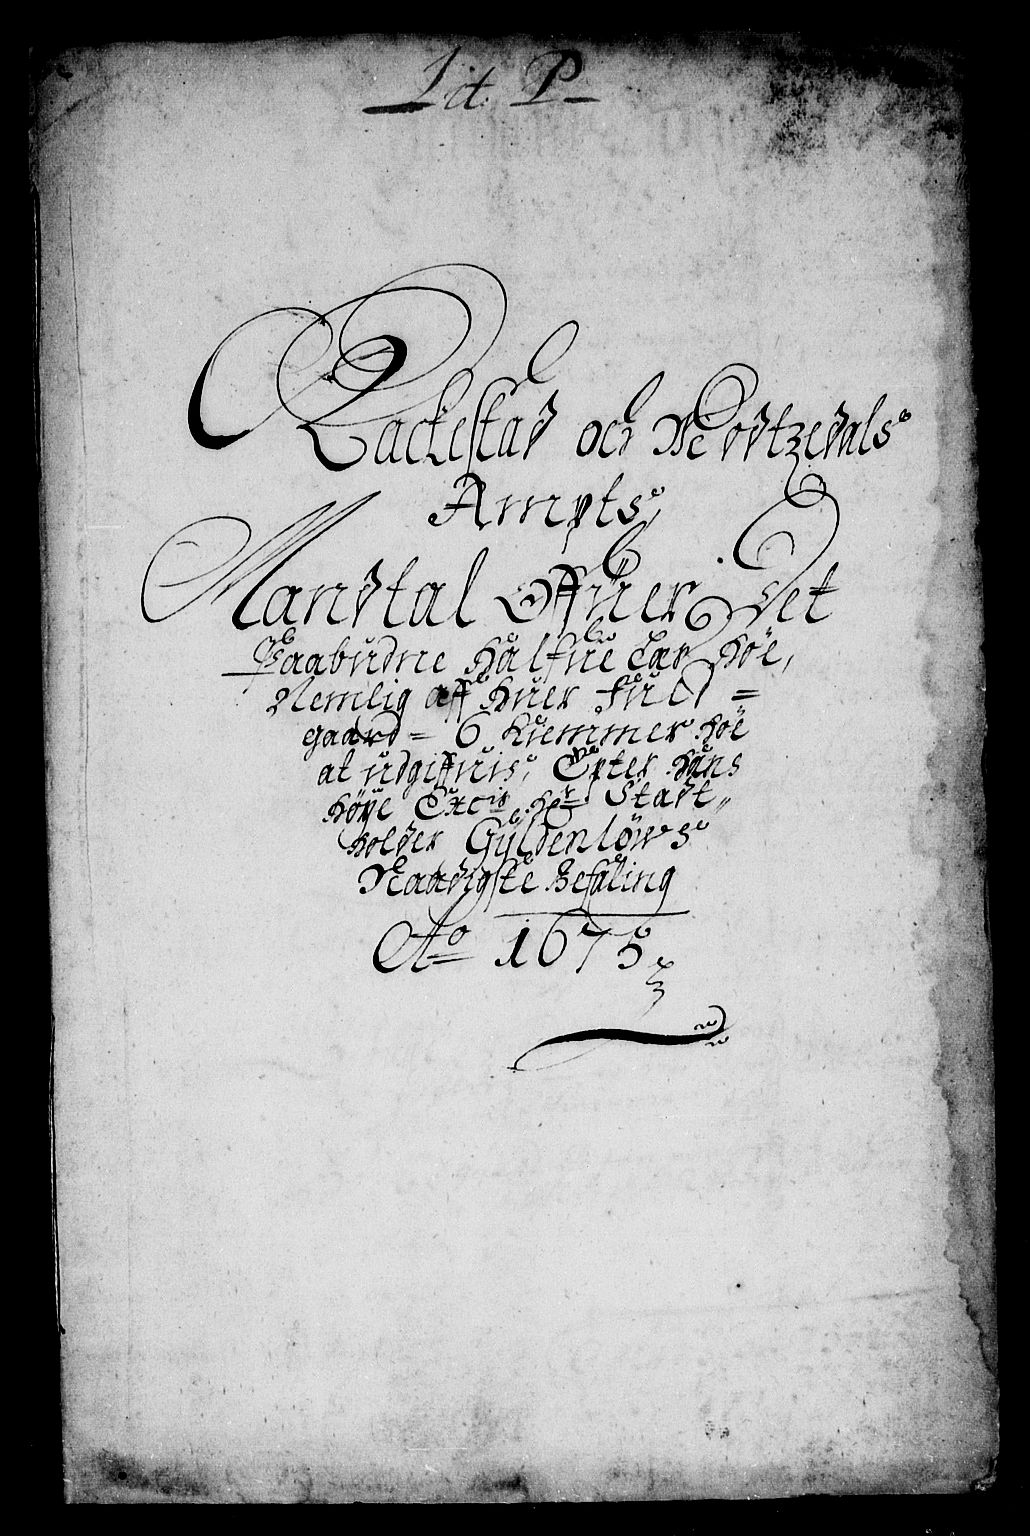 Lit. P
Rackestad och Herodtzedals
Ampts
Mandtal Offuer Det
Paabudne Halfue Lar Høe,
Nemlig aff huer fuld=
gaard = 6 Kiemmer høe
at udgiffuis, Epter hans
høye Excie hr. Stadt,,
holder Gyldenløws
Naadigste Befaling
Ao 1675